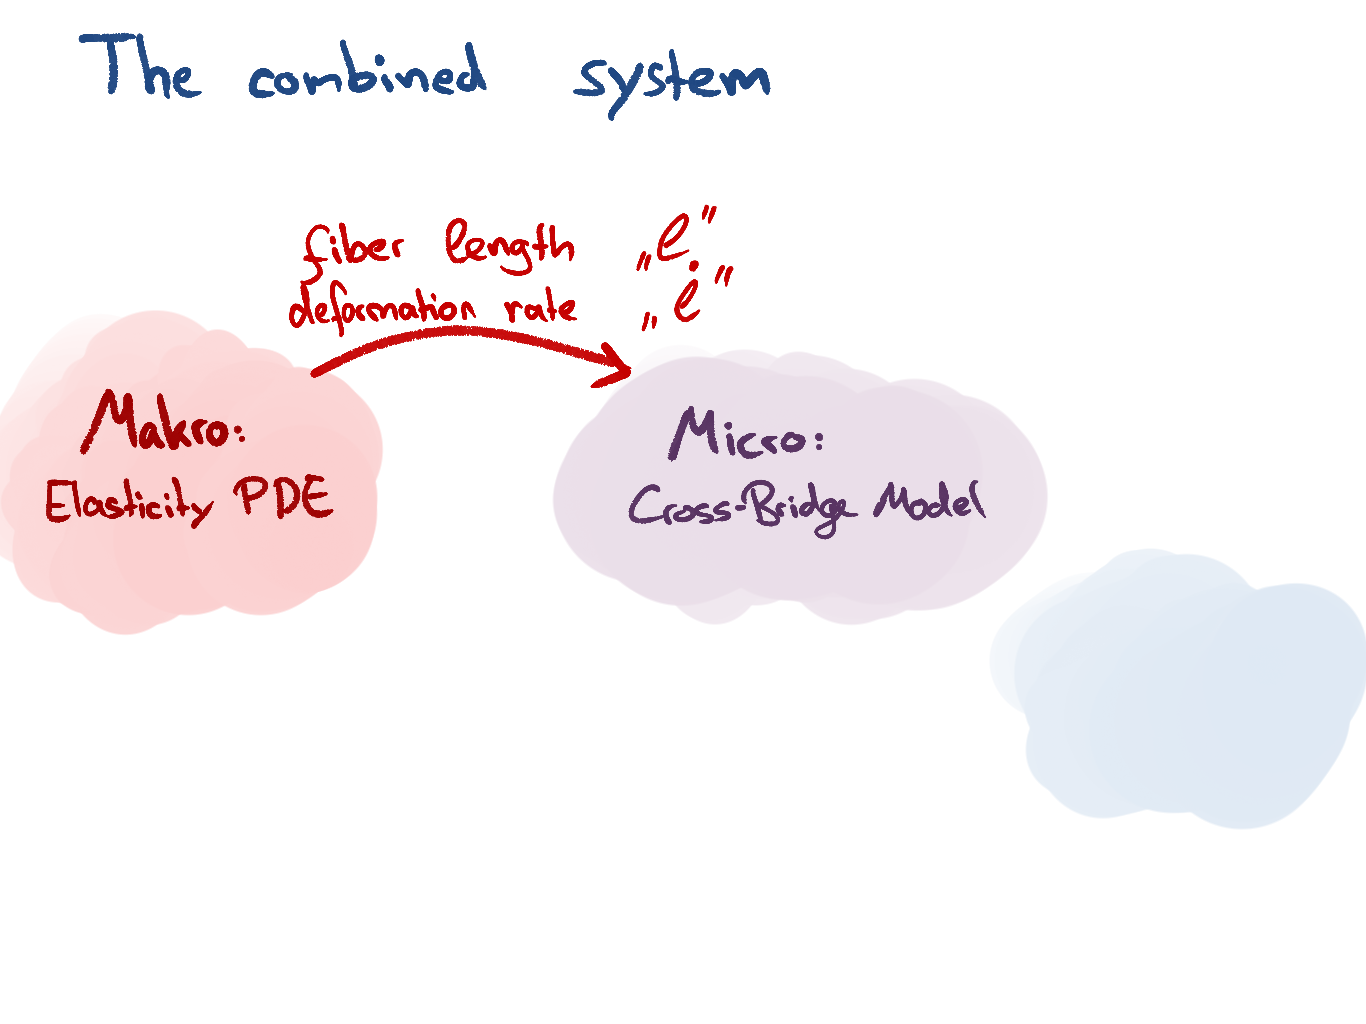 The combined system
fiber length „ℓ"
deformation rate „ℓ̇"
Makro:
Elasticity PDE
Micro:
Cross-Bridge Model